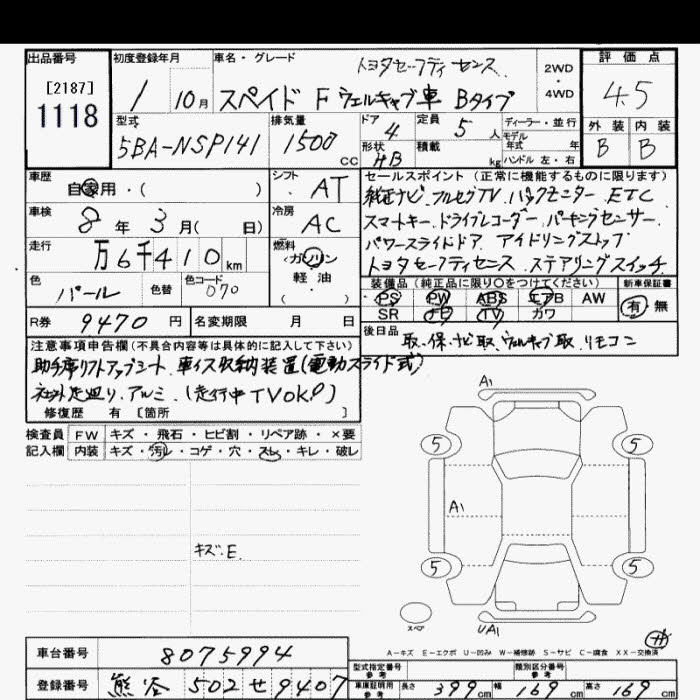 出品番号
[2187]
1118
初度登録年月
1 10月
車名・グレード
トヨタセーフティセンス
スペイド F ウェルキャブ車 Bタイプ
2WD
・
4WD
評価点
4.5
外装 内装
B B
型式
5BA-NSP141
排気量
1500
CC
ドア
4
定員
5人
形状
HB
積載
kg
ディーラー・並行
モデル
年式 年
ハンドル 左・右
車歴
自家用・( )
シフト
AT
車検
8年3月( 日)
冷房
AC
走行
万6千410km
燃料
ガソリン
軽・油
( )
色
パール
色替
色コード
070
R券
9470円
名変期限 月 日
セールスポイント(正常に機能するものに限ります)
純正ナビ.フルセグTV.バックモニター.ETC
スマートキー.ドライブレコーダー.パーキングセンサー.
パワースライドドア.アイドリングストップ
トヨタセーフティセンス.ステアリングスイッチ
装備品(純正品に限り○をつけてください)
PS PW ABS エアB AW
SR ナビ TV カワ
新車保証書
有・無
後日品
取.保.ナビ取.ウェルキャブ取.リモコン
注意事項申告欄(不具合内容等は具体的に記入して下さい)
助手席リフトアップシート.車イス収納装置(電動スライド式)
社外足廻り.アルミ.(走行中TVOK!)
修復歴 有[箇所 ]
検査員 FW キズ・飛石・ヒビ割・リペア跡・×要
記入欄 内装 キズ・汚れ・コゲ・穴・スレ・キレ・破レ
キズ.E.
A1
5 5
A1
5 5
スペア
UA1
A-キズ E-エクボ U-凹み W-補修跡 S-サビ C-腐食 XX-交換済
車台番号
8075994
登録番号
熊谷 502 せ 9407
型式指定番号
参考
類別区分番号
参考
車庫証明用
参考
長さ 399cm 幅 169cm 高さ 169cm